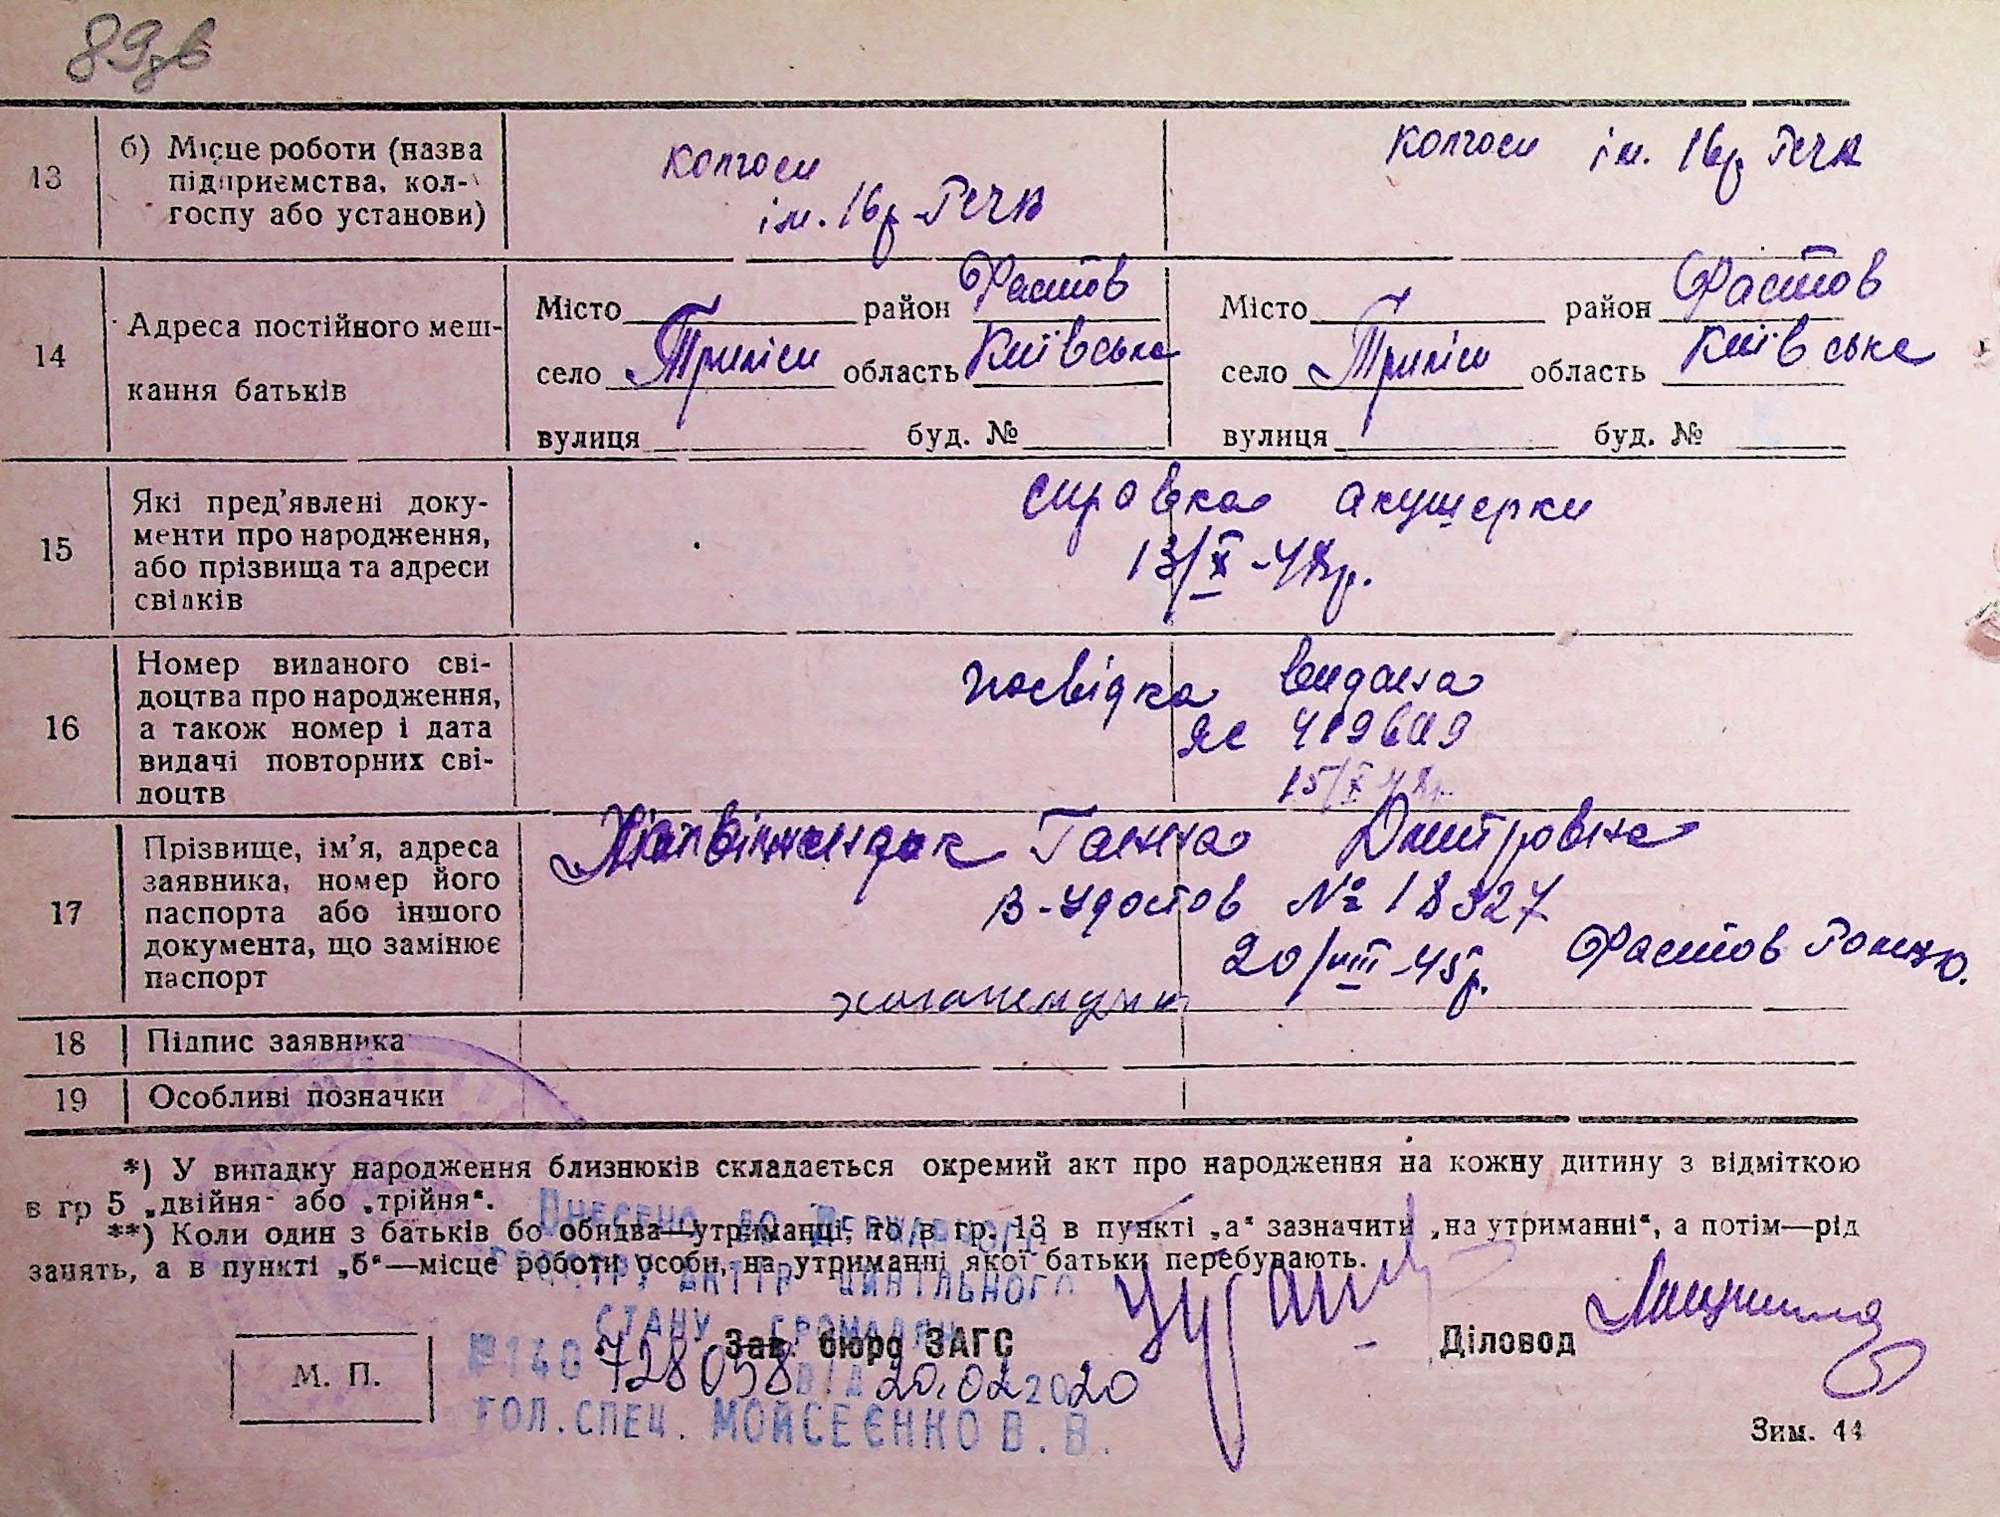 89зв
13
б) Місце роботи (назва
підприємства, кол-
госпу або установи)
колгосп
ім. 16р РСЧА
колгосп ім. 16р РСЧА
14
Адреса постійного меш-
кання батьків
Місто район Фастов
село Триліси область Київська
вулиця буд. №
Місто район Фастов
село Триліси область Київська
вулиця буд. №
15
Які пред'явлені доку-
менти про народження,
або прізвища та адреси
свідків
справка акушерки
13/X-48р.
16
Номер виданого сві-
доцтва про народження,
а також номер і дата
видачі повторних сві-
доцтв
посвідка видана
ЯС
15/X 48р.
17
Прізвище, ім'я, адреса
заявника, номер його
паспорта або іншого
документа, що замінює
паспорт
Ганна Дмитрівна
В-Удостов № 18327
20/VIII-45р. Фастов
18
Підпис заявника
19
Особливі позначки
*) У випадку народження близнюків складається окремий акт про народження на кожну дитину з відміткою
в гр 5 „двійня" або „трійня".
**) Коли один з батьків бо обидва—утриманці, то в гр. 13 в пункті „а" зазначити „на утриманні", а потім—рід
занять, а в пункті „б"—місце роботи особи, на утриманні якої батьки перебувають.
ВНЕСЕНО ДО ДЕРЖАВНОГО
РЕЄСТРУ АКТІВ ЦИВІЛЬНОГО
СТАНУ ГРОМАДЯН
Зав. бюро ЗАГС
Діловод
М. П.
№ 140 728058 ВІД 20.02 2020
ГОЛ.СПЕЦ. МОЙСЕЄНКО В.В.
Зим. 44